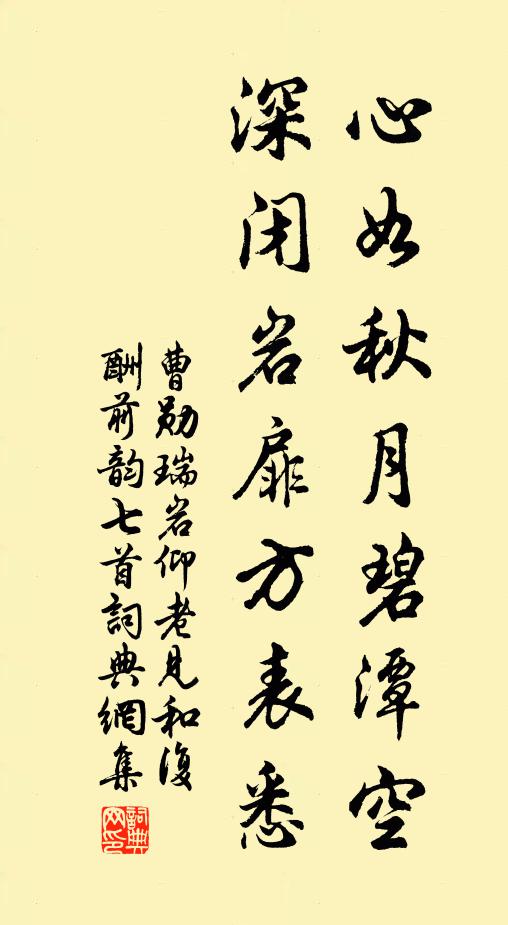 心如秋月碧潭空
深闭岩扉方表悉
曹勋瑞岩仰老见和复
酬前韵七首詞典網集
詞典
网印